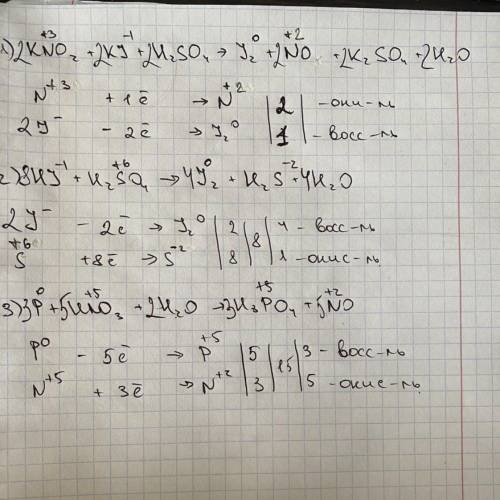 1) 2KN⁺³O₂ + 2KJ⁻¹ + 2H₂SO₄ → J₂⁰ + 2N⁺²O + 2K₂SO₄ + 2H₂O
N⁺³ + 1ē → N⁺² | 2 | - окис-ль
2J⁻ - 2ē → J₂⁰ | 1 | - восс-ль
2) 8HJ⁻¹ + H₂S⁺⁶O₄ → 4J₂⁰ + H₂S⁻² + 4H₂O
2J⁻ - 2ē → J₂⁰ | 2 | 8 | 4 - восс-ль
S⁺⁶ + 8ē → S⁻² | 8 | 1 - окис-ль
3) 3P⁰ + 5HN⁺⁵O₃ + 2H₂O → 3H₃P⁺⁵O₄ + 5N⁺²O
P⁰ - 5ē → P⁺⁵ | 5 | 15 | 3 - восс-ль
N⁺⁵ + 3ē → N⁺² | 3 | 5 - окис-ль